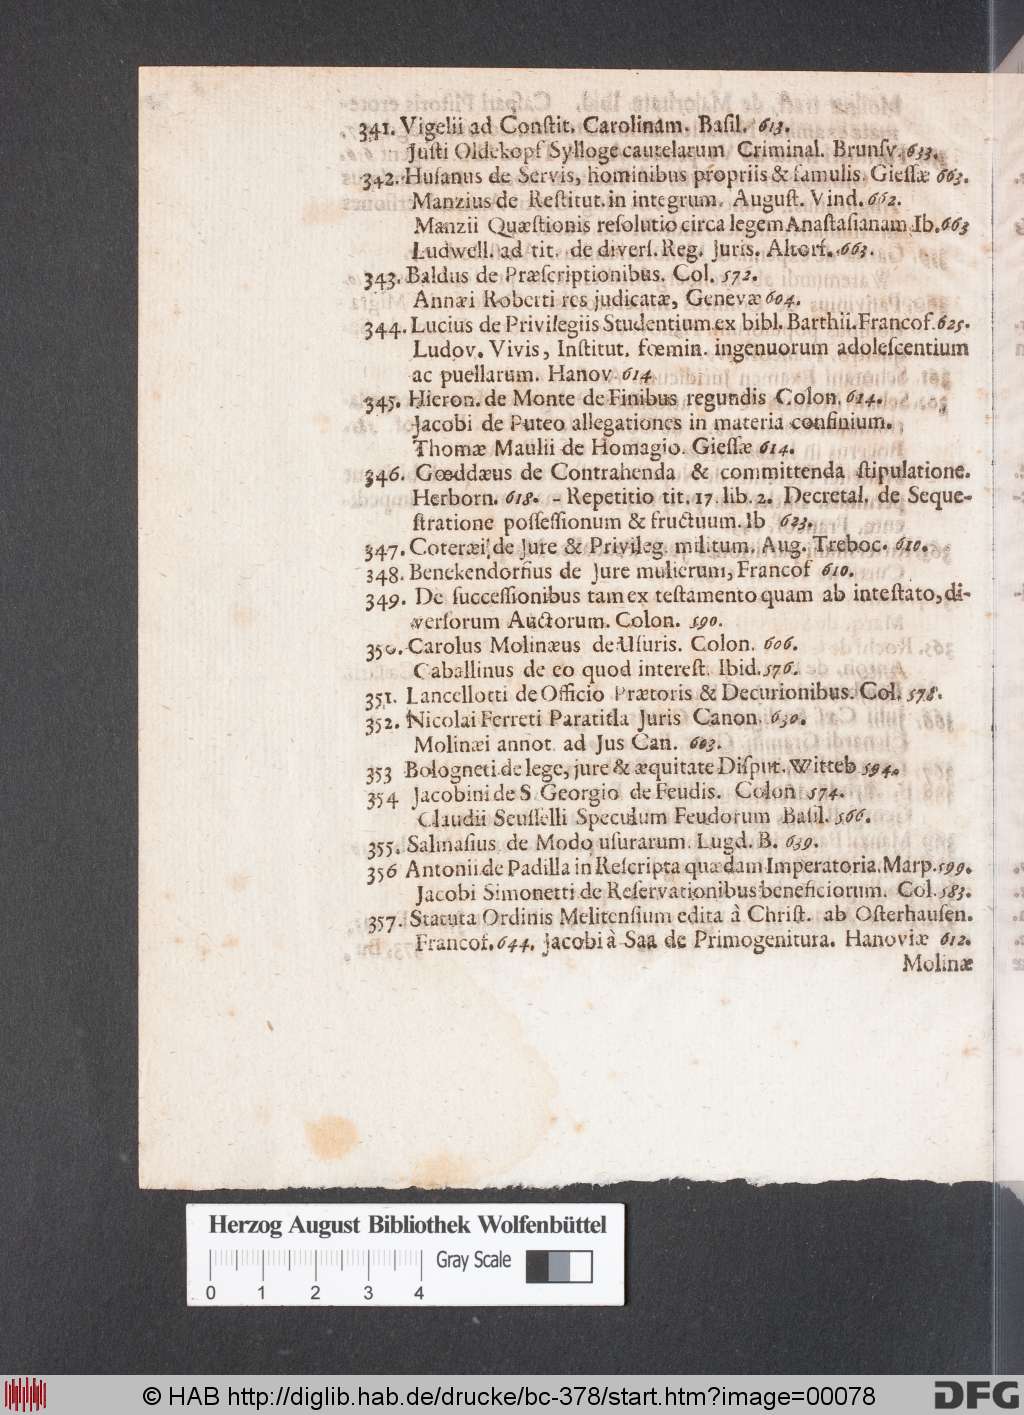 341. Vigelii ad Conſtit. Carolinam. Baſil. 613.
Juſti Oldekopf Sylloge cautelarum Criminal. Brunſv. 633.
342. Huſanus de Servis, hominibus propriis & famulis. Gieſſæ 663.
Manzius de Reſtitut. in integrum. Auguſt. Vind. 662.
Manzii Quæſtionis reſolutio circa legem Anaſtaſianam Ib. 663
Ludwell. ad tit. de diverſ. Reg. Juris. Altorf. 663.
343. Baldus de Præſcriptionibus. Col. 572.
Annæi Roberti res judicatæ, Genevæ 604.
344. Lucius de Privilegiis Studentium ex bibl. Barthii. Francof. 625.
Ludov. Vivis, Inſtitut. fœmin. ingenuorum adoleſcentium
ac puellarum. Hanov. 614
345. Hieron. de Monte de Finibus regundis Colon. 614.
Jacobi de Puteo allegationes in materia confinium.
Thomæ Maulii de Homagio. Gieſſæ 614.
346. Gœddæus de Contrahenda & committenda ſtipulatione.
Herborn. 618. - Repetitio tit. 17. lib. 2. Decretal. de Seque-
ſtratione poſſeſſionum & fructuum. Ib 623.
347. Coteræi de Jure & Privileg. militum. Aug. Treboc. 610.
348. Benekendorfius de Jure mulierum, Francof 610.
349. De ſucceſſionibus tam ex teſtamento quam ab inteſtato, di-
verſorum Auctorum. Colon. 590.
350. Carolus Molinæus de Uſuris. Colon. 606.
Caballinus de eo quod intereſt. Ibid. 576.
351. Lancellotti de Officio Prætoris & Decurionibus. Col. 578.
352. Nicolai Ferreti Paratitla Juris Canon. 630.
Molinæi annot. ad Jus Can. 603.
353 Bologneti de lege, jure & æquitate Diſput. Witteb 594.
354 Jacobini de S. Georgio de Feudis. Colon 574.
Claudii Seuſſelli Speculum Feudorum Baſil. 566.
355. Salmaſius de Modo uſurarum. Lugd. B. 639.
356 Antonii de Padilla in Reſcripta quædam Imperatoria. Marp. 599.
Jacobi Simonetti de Reſervationibus beneficiorum. Col. 583.
357. Statuta Ordinis Melitenſium edita à Chriſt. ab Oſterhauſen.
Francof. 644. Jacobi à Saa de Primogenitura. Hanoviæ 612.
Molinæ
Herzog August Bibliothek Wolfenbüttel
Gray Scale
0 1 2 3 4
© HAB http://diglib.hab.de/drucke/bc-378/start.htm?image=00078
DFG